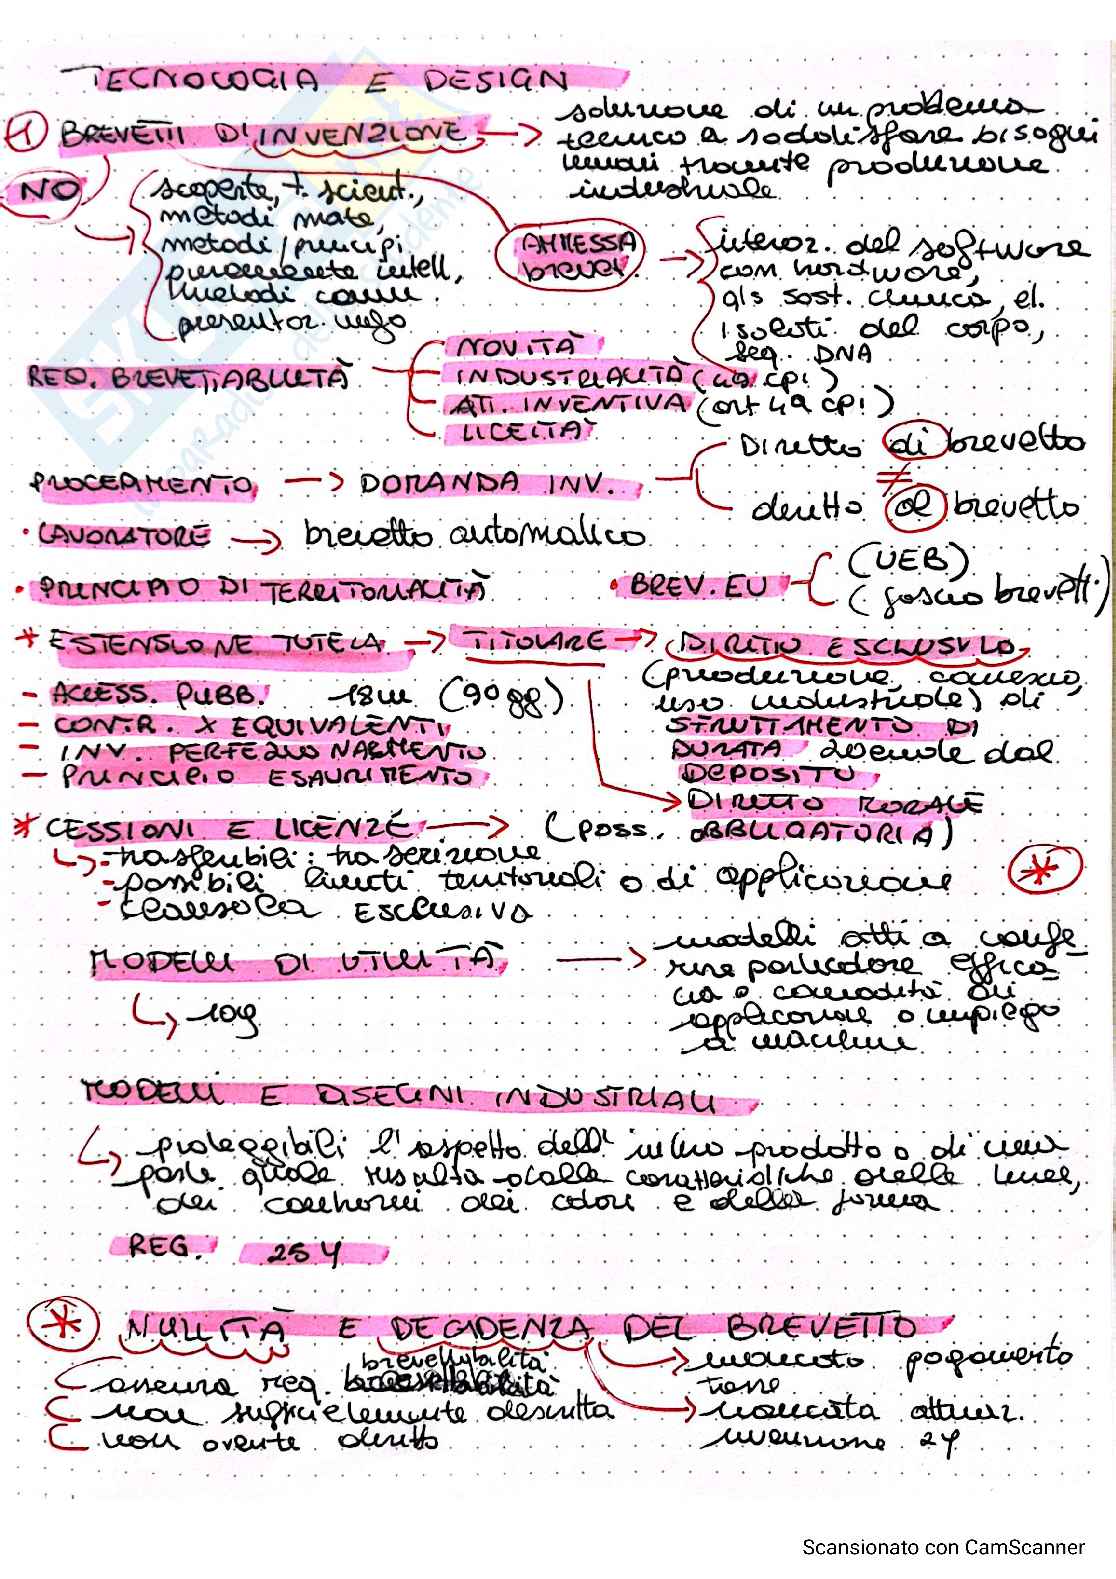 TECNOLOGIA E DESIGN
1 BREVETTI DI INVENZIONE → soluzione di un problema
tecnico a soddisfare bisogni
umani tramite produzione
industriale
NO
scoperte, t. scient.,
metodi mate,
metodi/principi
puramente intell,
metodi comm.
presentaz. info
AMMESSA
brevet.
interaz. del software
con hardware,
gls sost. chimica, el.
isolati del corpo,
seq. DNA
REQ. BREVETTABILITÀ
NOVITÀ
INDUSTRIALITÀ (49 cpi)
ATT. INVENTIVA (art 49 cpi)
LICEITÀ
PROCEDIMENTO → DOMANDA INV.
Diretto di brevetto
≠
diritto al brevetto
• LAVORATORE → brevetto automatico
• PRINCIPIO DI TERRITORIALITÀ
• BREV. EU
(UEB)
(fascio brevetti)
* ESTENSIONE TUTELA → TITOLARE → DIRITTO ESCLUSIVO
(produzione, commercio,
uso industriale) di
SFRUTTAMENTO DI
DURATA 20ennale dal
DEPOSITO
DIRITTO MORALE
- ACCESS. PUBB. 18m (90gg)
- CONTR. X EQUIVALENTI
- INV. PERFEZIONAMENTO
- PRINCIPIO ESAURIMENTO
* CESSIONI E LICENZE → (poss. OBBLIGATORIA)
- trasferibili: trascrizione
- possibili limiti territoriali o di applicazione
- clausola ESCLUSIVA
*
MODELLI DI UTILITÀ → modelli atti a confe-
rire particolare effica-
cia o comodità di
applicazione o impiego
a macchine
10y
MODELLI E DISEGNI INDUSTRIALI
proteggibili l'aspetto dell'intero prodotto o di una
parte quale risulta dalle caratteristiche delle linee,
dei contorni dei colori e della forma
REG. 25 y
* NULLITÀ E DECADENZA DEL BREVETTO
brevettabilità
assenza req.
non sufficientemente descritta
non avente diritto
mancato pagamento
tasse
mancata attuaz.
invenzione 2y
Scansionato con CamScanner